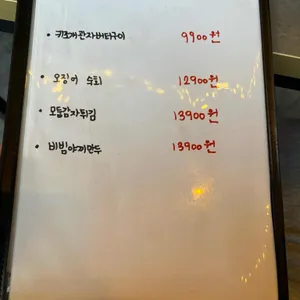 • 키조개관자버터구이 9900원
• 오징어 숙회 12900원
• 모듬감자튀김 13900원
• 비빔야끼만두 13900원